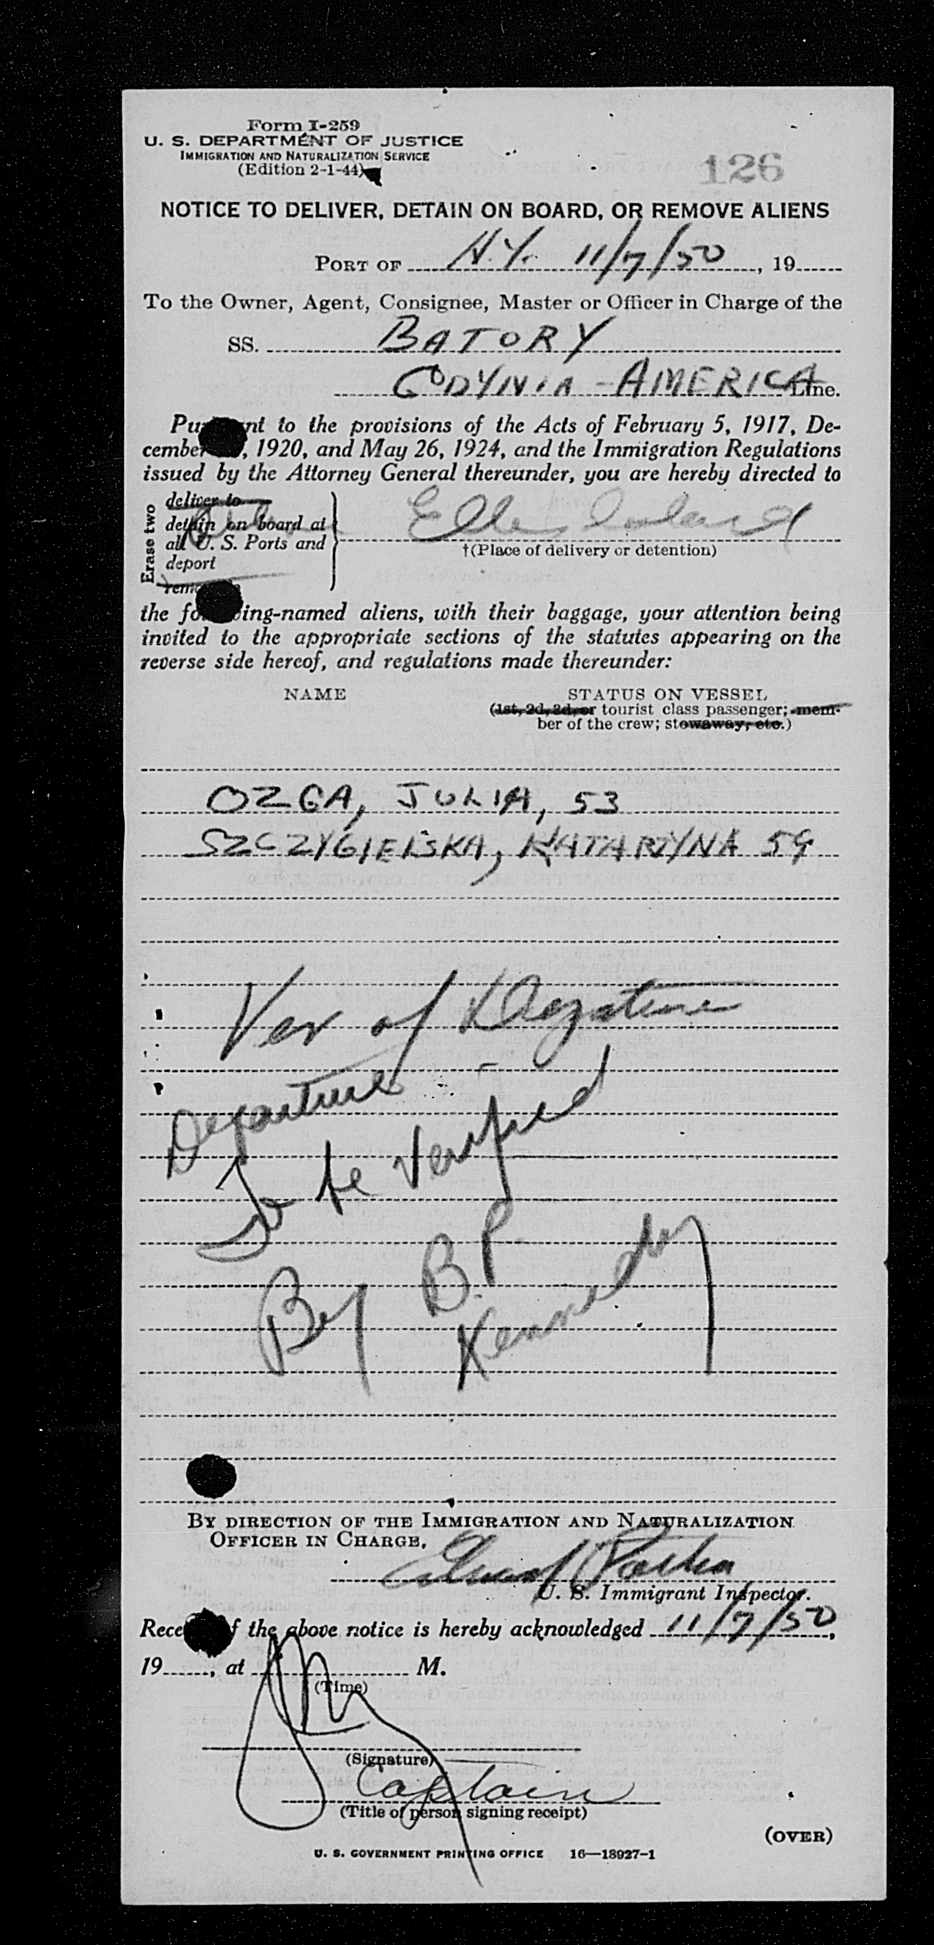 Form I-259
U. S. DEPARTMENT OF JUSTICE
IMMIGRATION AND NATURALIZATION SERVICE
(Edition 2-1-44)
126
NOTICE TO DELIVER, DETAIN ON BOARD, OR REMOVE ALIENS
PORT OF N.Y. 11/7/50, 19
To the Owner, Agent, Consignee, Master or Officer in Charge of the
SS. BATORY
GDYNIA - AMERICA Line.
nt to the provisions of the Acts of February 5, 1917, De-
cember , 1920, and May 26, 1924, and the Immigration Regulations
issued by the Attorney General thereunder, you are hereby directed to
Erase two
deliver to
detain on board at
all U. S. Ports and
deport
Ellis Island
†(Place of delivery or detention)
the ing-named aliens, with their baggage, your attention being
invited to the appropriate sections of the statutes appearing on the
reverse side hereof, and regulations made thereunder:
NAME STATUS ON VESSEL
(1st, 2d, 3d, or tourist class passenger; mem-
ber of the crew; stowaway, etc.)
OZGA, JULIA, 53
SZCZYGIELSKA, KATARZYNA 59
Ver of Departure
Departure
To be Verified
By B.P.
Kennedy
BY DIRECTION OF THE IMMIGRATION AND NATURALIZATION
OFFICER IN CHARGE,
U. S. Immigrant Inspector.
f the above notice is hereby acknowledged 11/7/50,
19 , at M.
(Time)
(Signature)
Captain
(Title of person signing receipt)
(OVER)
U. S. GOVERNMENT PRINTING OFFICE 16—18927-1